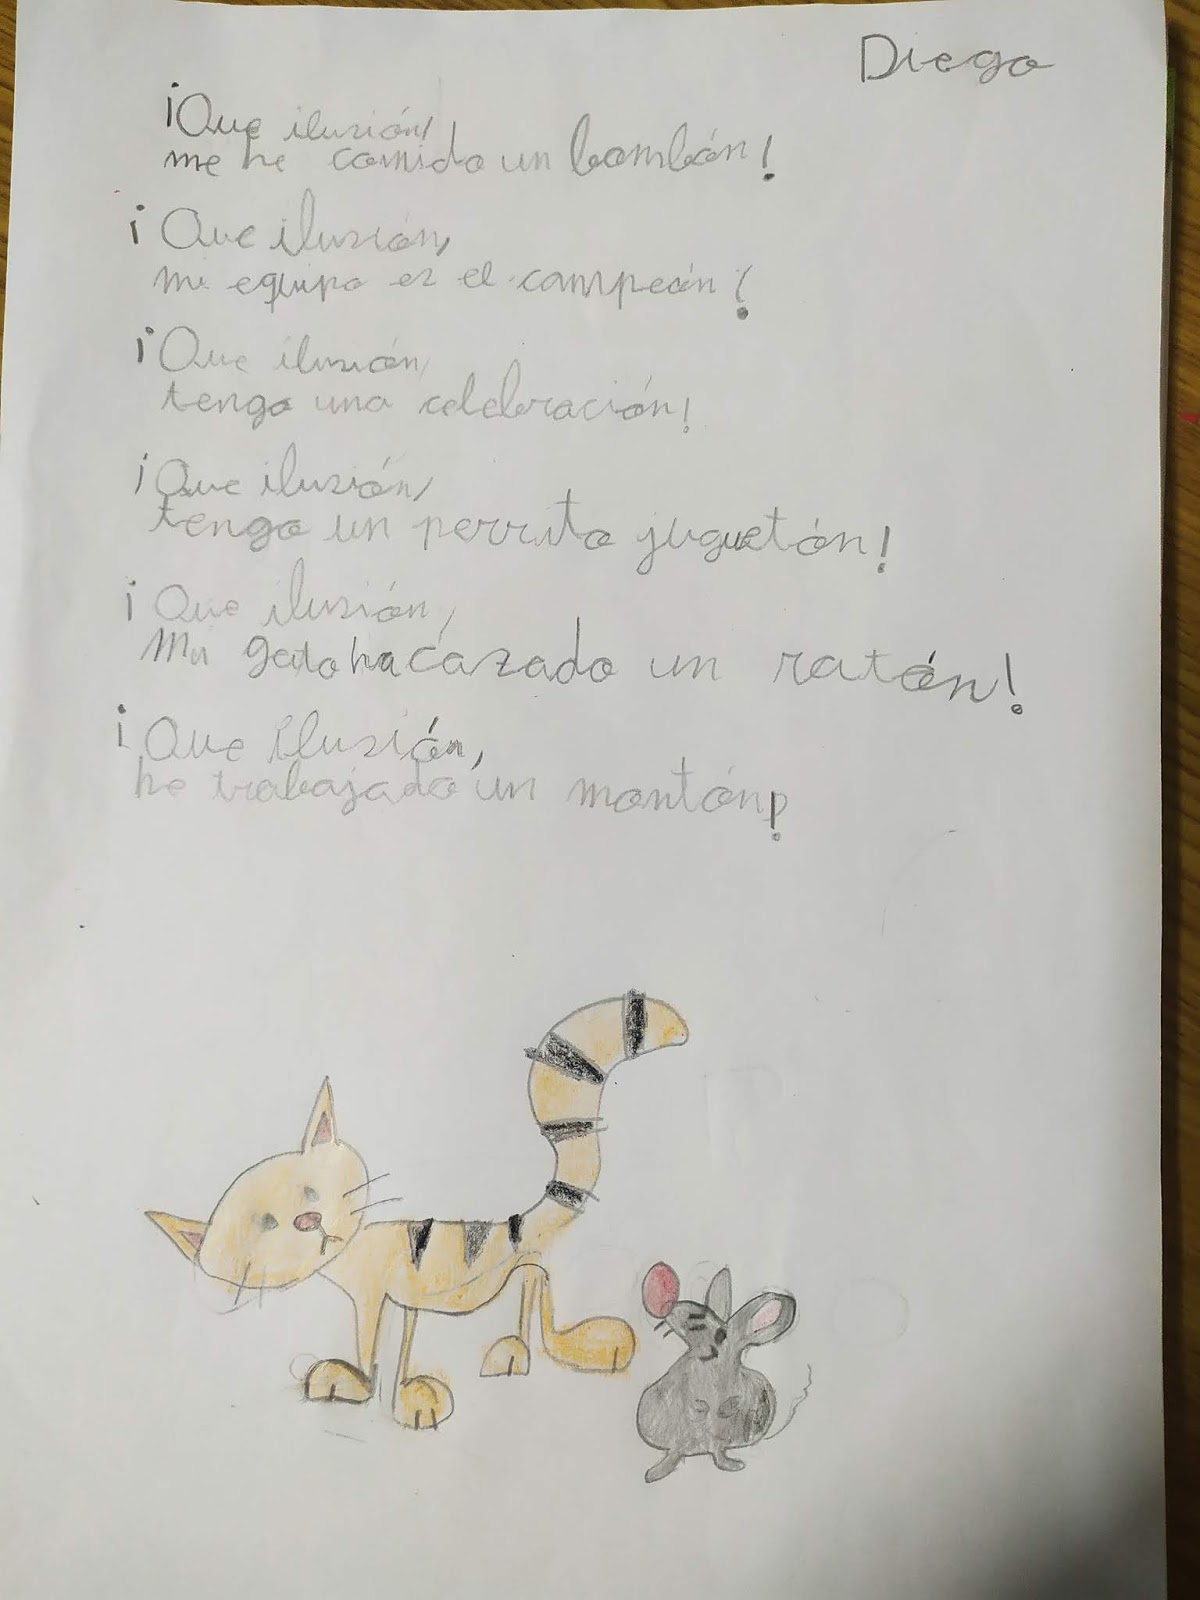 Diego
¡Que ilusión,
me he comido un bombón!
¡Que ilusión,
mi equipo es el campeón!
¡Que ilusión,
tengo una celebración!
¡Que ilusión,
tengo un perrito juguetón!
¡Que ilusión,
Mi gato ha cazado un ratón!
¡Que ilusión,
he trabajado un montón!